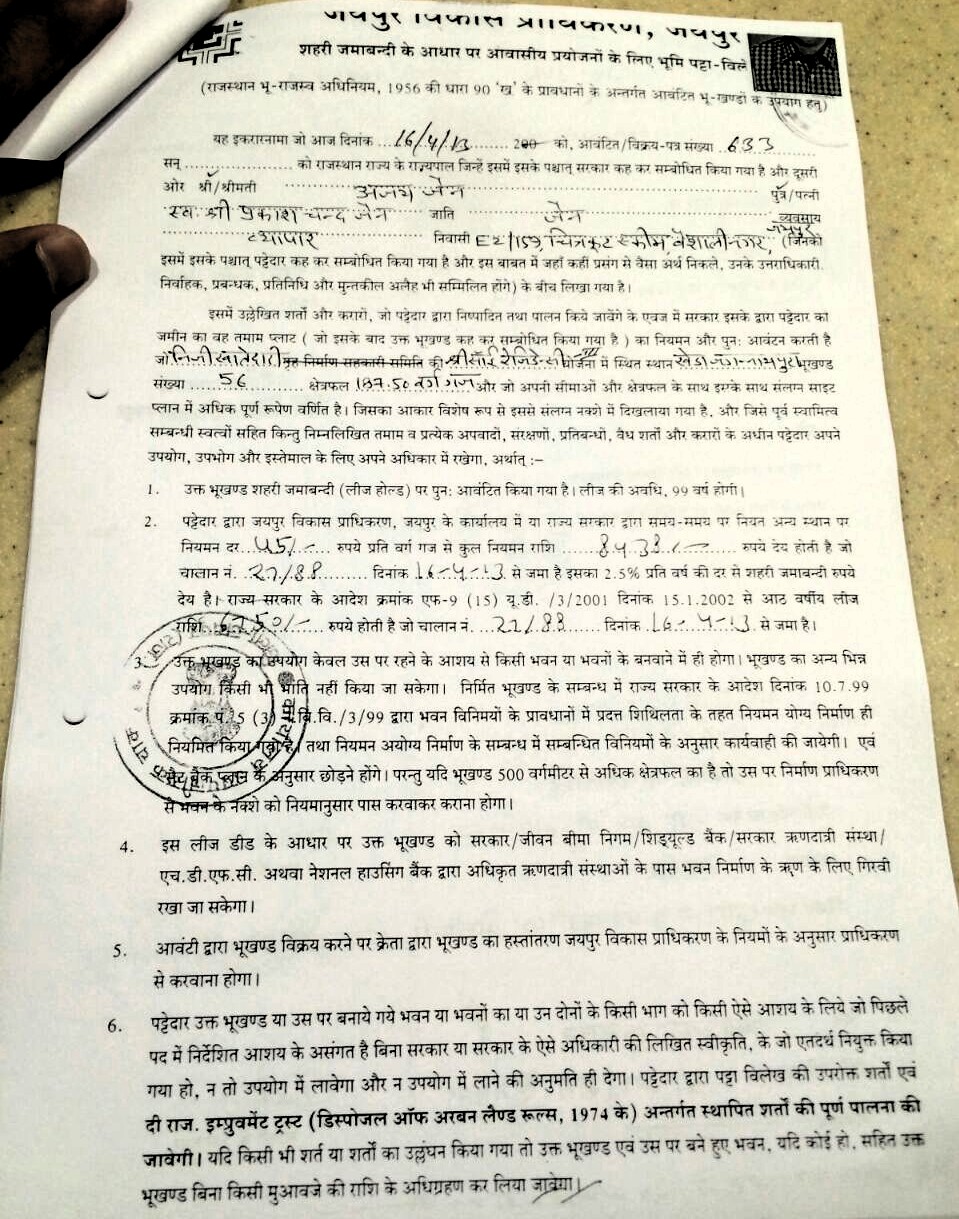 जयपुर विकास प्राधिकरण, जयपुर
शहरी जमाबन्दी के आधार पर आवासीय प्रयोजनों के लिए भूमि पट्टा-विले
(राजस्थान भू-राजस्व अधिनियम, 1956 की धारा 90 'ख' के प्रावधानों के अन्तर्गत आवंटित भू-खण्डों के उपयोग हेतु)
यह इकरारनामा जो आज दिनांक ...16/4/13 ...... 200 को, आवंटित/विक्रय-पत्र संख्या ..633
सन् ............... को राजस्थान राज्य के राज्यपाल जिन्हें इसमें इसके पश्चात् सरकार कह कर सम्बोधित किया गया है और दूसरी
ओर श्री/श्रीमती ........ अजय जैन ........ पुत्र/पत्नी
स्व. श्री प्रकाश चन्द जैन ...... जाति ........ जैन ........ व्यवसाय
व्यापार ........ निवासी E2/159, चित्रकूट स्कीम, वैशाली नगर, जयपुर (जिनको
इसमें इसके पश्चात् पट्टेदार कह कर सम्बोधित किया गया है और इस बाबत में जहाँ कहीं प्रसंग से वैसा अर्थ निकले, उनके उत्तराधिकारी.
निर्वाहक, प्रबन्धक, प्रतिनिधि और मुन्तकील अलैह भी सम्मिलित होंगे) के बीच लिखा गया है।
इसमें उल्लेखित शर्तों और करारों, जो पट्टेदार द्वारा निष्पादित तथा पालन किये जावेंगे के एवज में सरकार इसके द्वारा पट्टेदार का
जमीन का वह तमाम प्लाट ( जो इसके बाद उक्त भूखण्ड कह कर सम्बोधित किया गया है ) का नियमन और पुनः आवंटन करती है
जो निजी खातेदारी गृह निर्माण सहकारी समिति की श्री साई रेजिडेन्सी-III योजना में स्थित स्थान भूखण्ड
संख्या ........ 56 ........ क्षेत्रफल 187.50 वर्ग गज और जो अपनी सीमाओं और क्षेत्रफल के साथ इसके साथ संलग्न साइट
प्लान में अधिक पूर्ण रूपेण वर्णित है। जिसका आकार विशेष रूप से इससे संलग्न नक्शे में दिखलाया गया है, और जिसे पूर्व स्वामित्व
सम्बन्धी स्वत्वों सहित किन्तु निम्नलिखित तमाम व प्रत्येक अपवादों, संरक्षणों, प्रतिबन्धों, वैध शर्तों और करारों के अधीन पट्टेदार अपने
उपयोग, उपभोग और इस्तेमाल के लिए अपने अधिकार में रखेगा, अर्थात् :–
1. उक्त भूखण्ड शहरी जमाबन्दी (लीज होल्ड) पर पुनः आवंटित किया गया है। लीज की अवधि, 99 वर्ष होगी।
2. पट्टेदार द्वारा जयपुर विकास प्राधिकरण, जयपुर के कार्यालय में या राज्य सरकार द्वारा समय-समय पर नियत अन्य स्थान पर
नियमन दर ..45/-.... रुपये प्रति वर्ग गज से कुल नियमन राशि ......8438/-...... रुपये देय होती है जो
चालान नं. ..27/88........ दिनांक 16-4-13 से जमा है इसका 2.5% प्रति वर्ष की दर से शहरी जमाबन्दी रुपये
देय है। राज्य सरकार के आदेश क्रमांक एफ-9 (15) यू.डी. /3/2001 दिनांक 15.1.2002 से आठ वर्षीय लीज
राशि..6750/-..... रुपये होती है जो चालान नं. ...27/88........ दिनांक 16-4-13 से जमा है।
3. उक्त भूखण्ड का उपयोग केवल उस पर रहने के आशय से किसी भवन या भवनों के बनवाने में ही होगा। भूखण्ड का अन्य भिन्न
उपयोग किसी भी भाँति नहीं किया जा सकेगा। निर्मित भूखण्ड के सम्बन्ध में राज्य सरकार के आदेश दिनांक 10.7.99
क्रमांक प. 5 (3) न.वि.वि./3/99 द्वारा भवन विनिमयों के प्रावधानों में प्रदत्त शिथिलता के तहत नियमन योग्य निर्माण ही
नियमित किया गया है, तथा नियमन अयोग्य निर्माण के सम्बन्ध में सम्बन्धित विनियमों के अनुसार कार्यवाही की जायेगी। एवं
सैट बैक प्लान के अनुसार छोड़ने होंगे। परन्तु यदि भूखण्ड 500 वर्गमीटर से अधिक क्षेत्रफल का है तो उस पर निर्माण प्राधिकरण
से भवन के नक्शे को नियमानुसार पास करवाकर कराना होगा।
4. इस लीज डीड के आधार पर उक्त भूखण्ड को सरकार/जीवन बीमा निगम/शिड्यूल्ड बैंक/सरकार ऋणदात्री संस्था/
एच.डी.एफ.सी. अथवा नेशनल हाउसिंग बैंक द्वारा अधिकृत ऋणदात्री संस्थाओं के पास भवन निर्माण के ऋण के लिए गिरवी
रखा जा सकेगा।
5. आवंटी द्वारा भूखण्ड विक्रय करने पर क्रेता द्वारा भूखण्ड का हस्तांतरण जयपुर विकास प्राधिकरण के नियमों के अनुसार प्राधिकरण
से करवाना होगा।
6. पट्टेदार उक्त भूखण्ड या उस पर बनाये गये भवन या भवनों का या उन दोनों के किसी भाग को किसी ऐसे आशय के लिये जो पिछले
पद में निर्देशित आशय के असंगत है बिना सरकार या सरकार के ऐसे अधिकारी की लिखित स्वीकृति, के जो एतदर्थ नियुक्त किया
गया हो, न तो उपयोग में लावेगा और न उपयोग में लाने की अनुमति ही देगा। पट्टेदार द्वारा पट्टा विलेख की उपरोक्त शर्तों एवं
दी राज. इम्प्रुवमेंट ट्रस्ट (डिस्पोजल ऑफ अरबन लैण्ड रूल्स, 1974 के) अन्तर्गत स्थापित शर्तों की पूर्ण पालना की
जावेगी। यदि किसी भी शर्त या शर्तों का उल्लंघन किया गया तो उक्त भूखण्ड एवं उस पर बने हुए भवन, यदि कोई हो, सहित उक्त
भूखण्ड बिना किसी मुआवजे की राशि के अधिग्रहण कर लिया जावेगा।